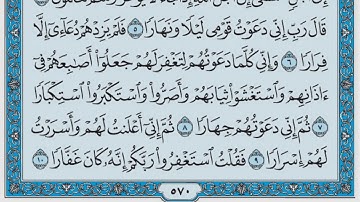 قَالَ رَبِّ إِنِّي دَعَوْتُ قَوْمِي لَيْلًا وَنَهَارًا ٥ فَلَمْ يَزِدْهُمْ دُعَآءِىٓ إِلَّا
فِرَارًا ٦ وَإِنِّي كُلَّمَا دَعَوْتُهُمْ لِتَغْفِرَ لَهُمْ جَعَلُوٓا۟ أَصَٰبِعَهُمْ فِىٓ
ءَاذَانِهِمْ وَٱسْتَغْشَوْا۟ ثِيَابَهُمْ وَأَصَرُّوا۟ وَٱسْتَكْبَرُوا۟ ٱسْتِكْبَارًا
٧ ثُمَّ إِنِّي دَعَوْتُهُمْ جِهَارًا ٨ ثُمَّ إِنِّىٓ أَعْلَنتُ لَهُمْ وَأَسْرَرْتُ
لَهُمْ إِسْرَارًا ٩ فَقُلْتُ ٱسْتَغْفِرُوا۟ رَبَّكُمْ إِنَّهُۥ كَانَ غَفَّارًا ١٠
٥٧٠